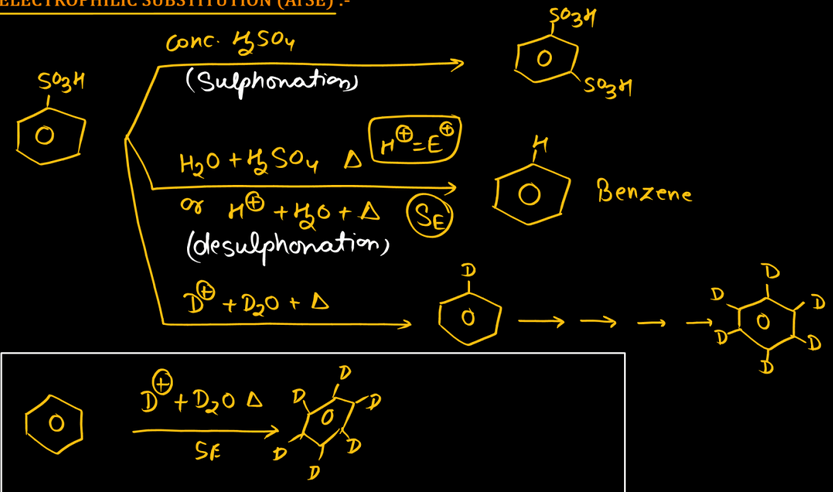 ELECTROPHILIC SUBSTITUTION (ArSE) :-
conc. H₂SO₄
(Sulphonation)
SO₃H
SO₃H
SO₃H
H₂O + H₂SO₄ Δ
H⊕ = E⊕
or H⊕ + H₂O + Δ
SE
(desulphonation)
H
Benzene
D⊕ + D₂O + Δ
D
D
D
D
D
D
D
D⊕ + D₂O Δ
SE
D
D
D
D
D
D